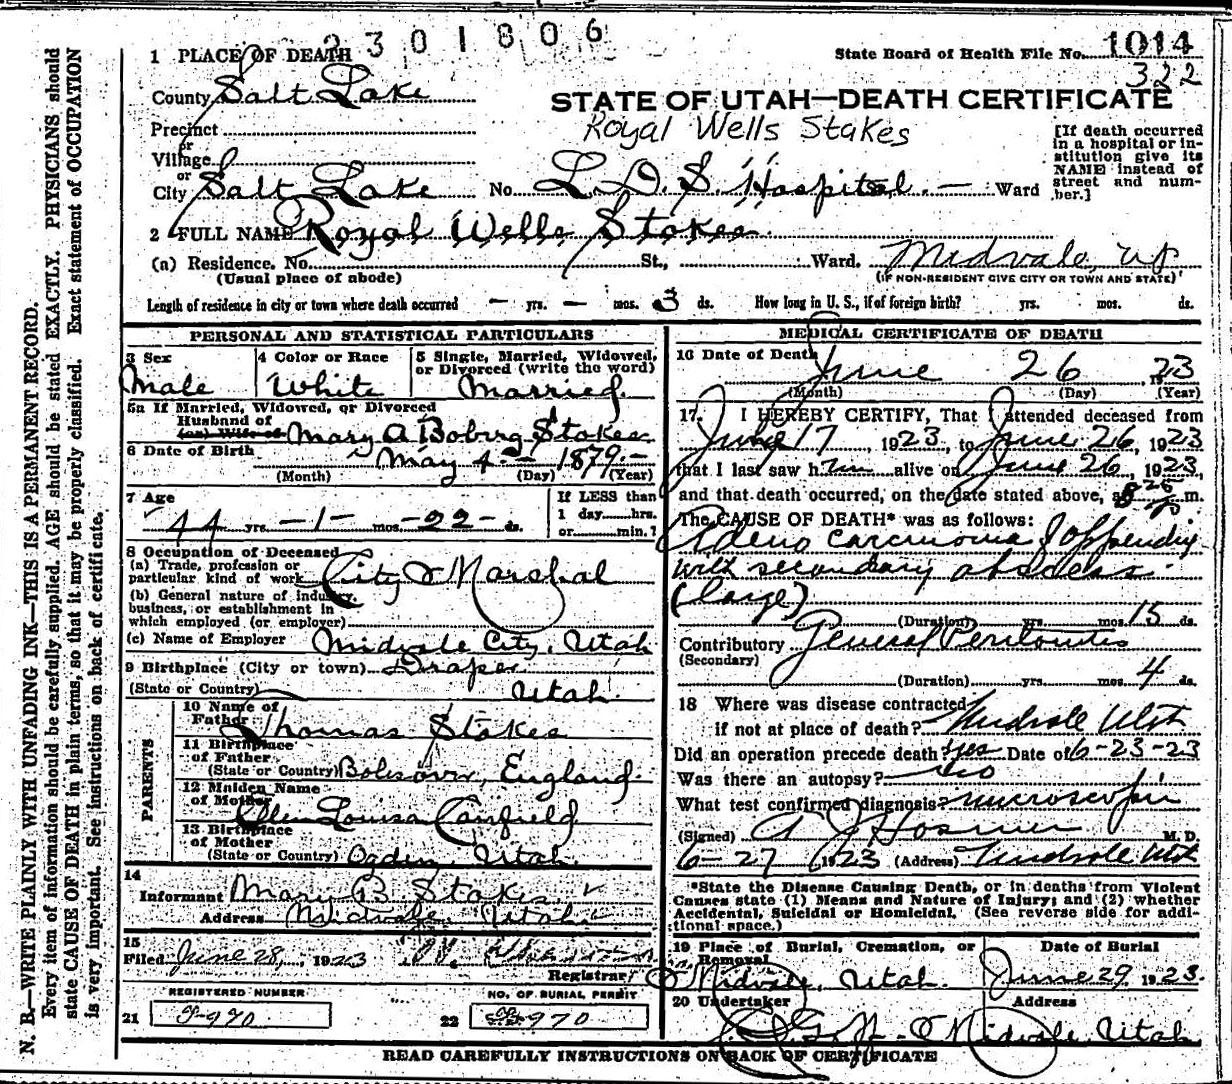 2301806
1 PLACE OF DEATH
State Board of Health File No. 1014
322
County Salt Lake
STATE OF UTAH—DEATH CERTIFICATE
Precinct
Royal Wells Stokes
or
Village
or
City Salt Lake No. L. D. S. Hospital. — Ward
[If death occurred
in a hospital or in-
stitution give its
NAME instead of
street and num-
ber.]
2 FULL NAME Royal Wells Stokes.
(a) Residence. No. St., Ward. Midvale, Ut
(Usual place of abode) (IF NON-RESIDENT GIVE CITY OR TOWN AND STATE)
Length of residence in city or town where death occurred — yrs. — mos. 3 ds. How long in U. S., if of foreign birth? yrs. mos. ds.
PERSONAL AND STATISTICAL PARTICULARS
3 Sex
Male
4 Color or Race
White
5 Single, Married, Widowed,
or Divorced (write the word)
Married.
5a If Married, Widowed, or Divorced
Husband of
(or) Wife of Mary A Boberg Stokes
6 Date of Birth May 4 — 1879.—
(Month) (Day) (Year)
7 Age
44 yrs. —1— mos. —22— ds.
If LESS than
1 day......hrs.
or......min.?
8 Occupation of Deceased
(a) Trade, profession or
particular kind of work City Marshal
(b) General nature of industry,
business, or establishment in
which employed (or employer)
(c) Name of Employer Midvale City, Utah
9 Birthplace (City or town) Draper
(State or Country) Utah.
PARENTS
10 Name of
Father Thomas Stokes
11 Birthplace
of Father
(State or Country) Bolesover, England.
12 Maiden Name
of Mother
Ellen Louisa Canfield
13 Birthplace
of Mother
(State or Country) Ogden, Utah.
14
Informant Mary B. Stokes
Address Midvale, Utah
15
Filed June 28, 1923
Registrar
REGISTERED NUMBER
21 970
NO. OF BURIAL PERMIT
22 970
MEDICAL CERTIFICATE OF DEATH
16 Date of Death June 26, 1923
(Month) (Day) (Year)
17. I HEREBY CERTIFY, That I attended deceased from
June 17 1923, to June 26, 1923
that I last saw him alive on June 26, 1923,
and that death occurred, on the date stated above, at 8 25 p. m.
The CAUSE OF DEATH* was as follows:
Adeno carcinoma of appendix
with secondary abscess.
(large)
(Duration) yrs. mos. 15 ds.
Contributory General Peritonitis
(Secondary)
(Duration) yrs. mos. 4 ds.
18 Where was disease contracted
if not at place of death? Midvale Utah
Did an operation precede death? yes Date of 6-23-23
Was there an autopsy? no
What test confirmed diagnosis? microscopic
(Signed) A J Hosmer M. D.
6-27 1923 (Address) Midvale Utah
*State the Disease Causing Death, or in deaths from Violent
Causes state (1) Means and Nature of Injury; and (2) whether
Accidental, Suicidal or Homicidal. (See reverse side for addi-
tional space.)
19 Place of Burial, Cremation, or
Removal
Midvale, Utah.
Date of Burial
June 29, 1923.
20 Undertaker Address
Goff Midvale, Utah
READ CAREFULLY INSTRUCTIONS ON BACK OF CERTIFICATE
N. B.—WRITE PLAINLY WITH UNFADING INK—THIS IS A PERMANENT RECORD.
Every item of information should be carefully supplied. AGE should be stated EXACTLY. PHYSICIANS should
state CAUSE OF DEATH in plain terms, so that it may be properly classified. Exact statement of OCCUPATION
is very important. See instructions on back of certificate.